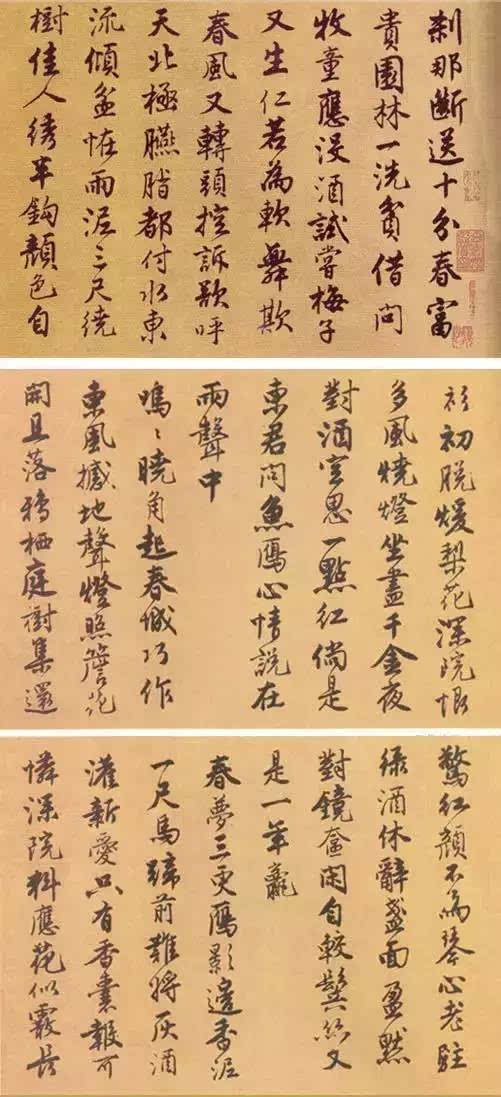 刹那斷送十分春富
貴園林一洗貧借問
牧童應沒酒試嘗梅子
又生仁若為軟舞欺
春風又轉頭控訴歌呼
天北極臙脂都付水東
流傾盆怪雨泥三尺繞
樹佳人綉半鈎顏色自
衫初脫煖梨花深院恨
多風燒燈坐盡千金夜
對酒空思一點紅倘是
東君問魚鴈心情說在
雨聲中
嗚〻曉角起春城巧作
東風撼地聲燈照簷花
開且落鴉栖庭樹集還
驚紅顏不為琴心老駐
綠酒休辭盞面盈默
對鏡奩閑自較鬢絲又
是一年虧
春夢三更鴈影邊香泥
一尺馬蹄前難將灰酒
灌新愛只有香囊報可
憐深院料應花似霰長